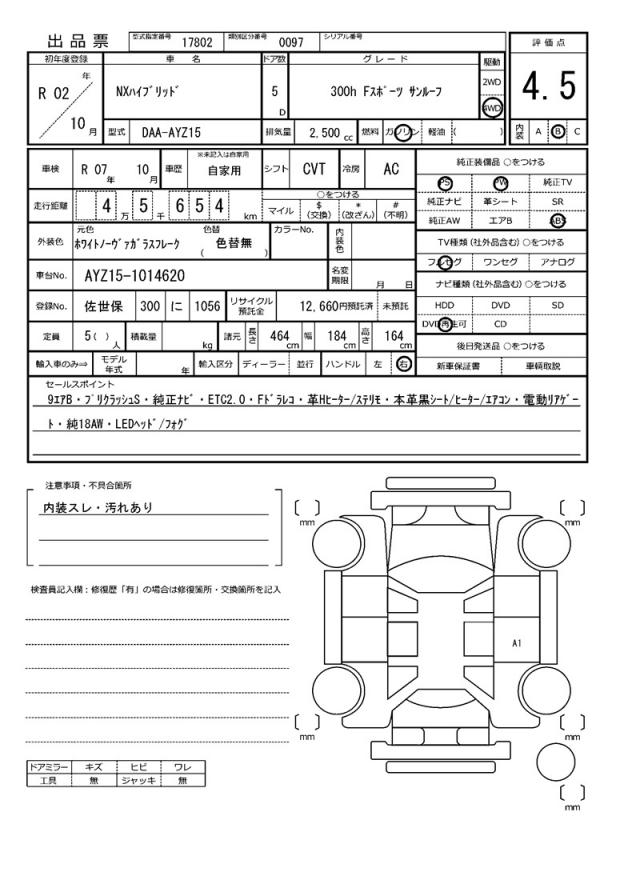 出品票 型式指定番号 17802 類別区分番号 0097 シリアル番号
評価点
4.5
内装 A B C
初年度登録 車名 ドア数 グレード 駆動
R 02 年 10 月
NXハイブリッド 5 D 300h Fスポーツ サンルーフ 2WD 4WD
型式 DAA-AYZ15 排気量 2,500 cc 燃料 ガソリン 軽油 ( )
車検 R 07 年 10 月 車歴 ※未記入は自家用 自家用 シフト CVT 冷房 AC
走行距離 4 万 5 千 6 5 4 km
○をつける
マイル $ (交換) * (改ざん) # (不明)
外装色 元色 ホワイトノーヴァガラスフレーク 色替 ( 色替無 ) カラーNo. 内装色
車台No. AYZ15-1014620 名変期限 月 日
登録No. 佐世保 300 に 1056 リサイクル預託金 12,660円預託済 未預託
定員 5( ) 人 積載量 kg 諸元 長さ 464 cm 幅 184 cm 高さ 164 cm
輸入車のみ⇒ モデル年式 年 輸入区分 ディーラー 並行 ハンドル 左 右
純正装備品 ○をつける
PS PW 純正TV
純正ナビ 革シート SR
純正AW エアB ABS
TV種類 (社外品含む) ○をつける
フルセグ ワンセグ アナログ
ナビ種類 (社外品含む) ○をつける
HDD DVD SD
DVD再生可 CD
後日発送品 ○をつける
新車保証書 車輌取説
セールスポイント
9エアB・プリクラッシュS・純正ナビ・ETC2.0・Fドラレコ・革Hヒーター/ステリモ・本革黒シート/ヒーター/エアコン・電動リアゲー
ト・純18AW・LEDヘッド/フォグ
注意事項・不具合箇所
内装スレ・汚れあり
検査員記入欄：修復歴「有」の場合は修復箇所・交換箇所を記入
ドアミラー キズ ヒビ ワレ
工具 無 ジャッキ 無
[ ] mm
[ ] mm
A1
[ ] mm
[ ] mm
[ ] mm